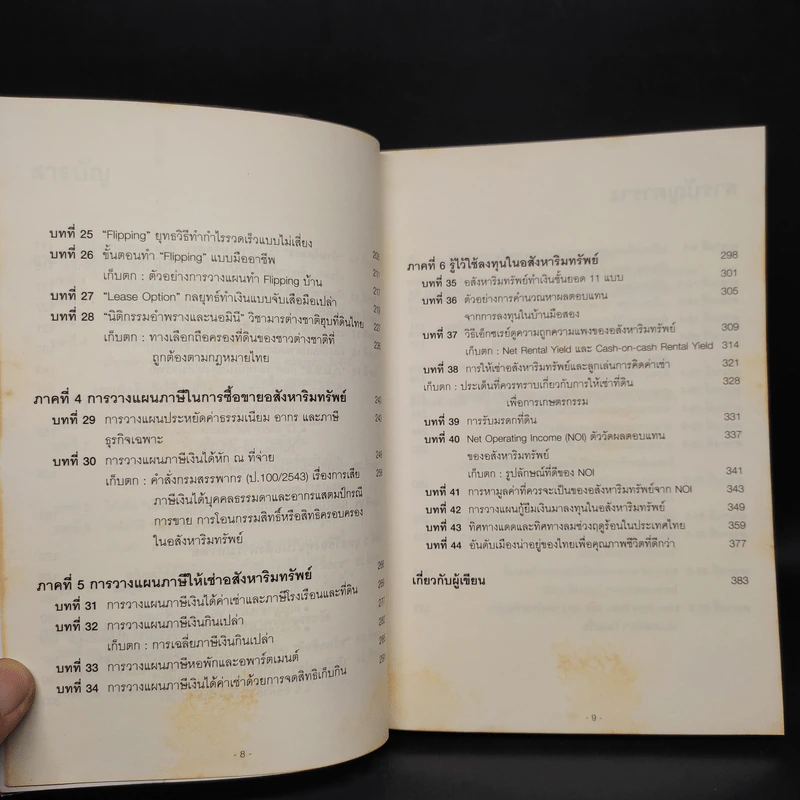 บทที่ 25 "Flipping" ยุทธวิธีทำกำไรรวดเร็วแบบไม่เสี่ยง
บทที่ 26 ขั้นตอนทำ "Flipping" แบบมืออาชีพ
เก็บตก : ตัวอย่างการวางแผนทำ Flipping บ้าน
บทที่ 27 "Lease Option" กลยุทธ์ทำเงินแบบจับเสือมือเปล่า
บทที่ 28 "นิติกรรมอำพรางและนอมินี" วิชามารต่างชาติฮุบที่ดินไทย
เก็บตก : ทางเลือกถือครองที่ดินของชาวต่างชาติที่
ถูกต้องตามกฎหมายไทย
ภาคที่ 4 การวางแผนภาษีในการซื้อขายอสังหาริมทรัพย์
บทที่ 29 การวางแผนประหยัดค่าธรรมเนียม อากร และภาษี
ธุรกิจเฉพาะ
บทที่ 30 การวางแผนภาษีเงินได้หัก ณ ที่จ่าย
เก็บตก : คำสั่งกรมสรรพากร (ป.100/2543) เรื่องการเสีย
ภาษีเงินได้บุคคลธรรมดาและอากรแสตมป์กรณี
การขาย การโอนกรรมสิทธิ์หรือสิทธิครอบครอง
ในอสังหาริมทรัพย์
ภาคที่ 5 การวางแผนภาษีให้เช่าอสังหาริมทรัพย์
บทที่ 31 การวางแผนภาษีเงินได้ค่าเช่าและภาษีโรงเรือนและที่ดิน
บทที่ 32 การวางแผนภาษีเงินกินเปล่า
เก็บตก : การเฉลี่ยภาษีเงินกินเปล่า
บทที่ 33 การวางแผนภาษีหอพักและอพาร์ตเมนต์
บทที่ 34 การวางแผนภาษีเงินได้ค่าเช่าด้วยการจดสิทธิเก็บกิน
- 8 -
ภาคที่ 6 รู้ไว้ใช้ลงทุนในอสังหาริมทรัพย์ 298
บทที่ 35 อสังหาริมทรัพย์ทำเงินชั้นยอด 11 แบบ 301
บทที่ 36 ตัวอย่างการคำนวณหาผลตอบแทน 305
จากการลงทุนในบ้านมือสอง
บทที่ 37 วิธีเอ็กซเรย์ดูความถูกความแพงของอสังหาริมทรัพย์ 309
เก็บตก : Net Rental Yield และ Cash-on-cash Rental Yield 314
บทที่ 38 การให้เช่าอสังหาริมทรัพย์และลูกเล่นการคิดค่าเช่า 321
เก็บตก : ประเด็นที่ควรทราบเกี่ยวกับการให้เช่าที่ดิน 328
เพื่อการเกษตรกรรม
บทที่ 39 การรับมรดกที่ดิน 331
บทที่ 40 Net Operating Income (NOI) ตัววัดผลตอบแทน 337
ของอสังหาริมทรัพย์
เก็บตก : รูปลักษณ์ที่ดีของ NOI 341
บทที่ 41 การหามูลค่าที่ควรจะเป็นของอสังหาริมทรัพย์จาก NOI 343
บทที่ 42 การวางแผนกู้ยืมเงินมาลงทุนในอสังหาริมทรัพย์ 349
บทที่ 43 ทิศทางแดดและทิศทางลมช่วงฤดูร้อนในประเทศไทย 359
บทที่ 44 อันดับเมืองน่าอยู่ของไทยเพื่อคุณภาพชีวิตที่ดีกว่า 377
เกี่ยวกับผู้เขียน 383
- 9 -